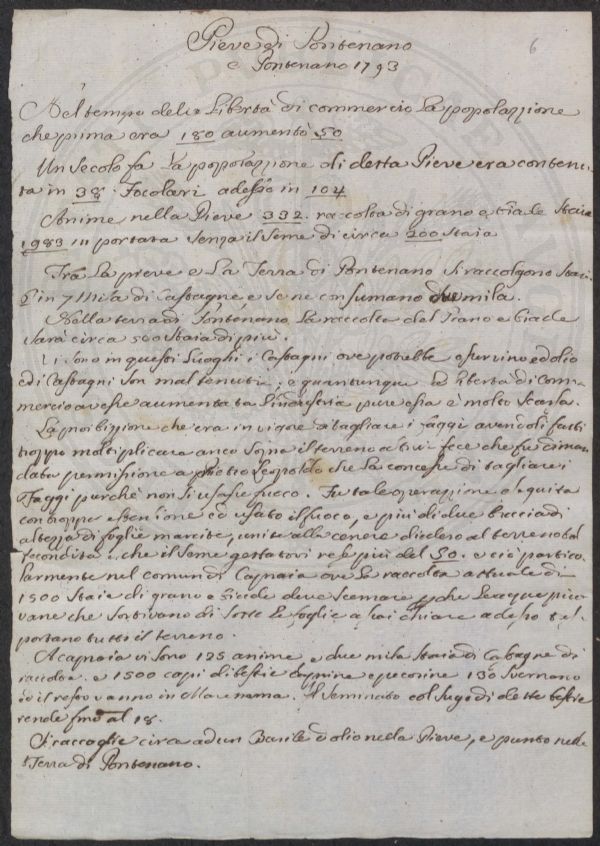 Pieve di Pontenano
e Pontenano 1793
6
Nel tempo della Libertà di commercio La popolazione
che prima era 180 aumentò 50
Un Secolo fa La popolazione di detta Pieve era contenu
ta in 38 Focolari adesso in 104
Anime nella Pieve 332. raccolta di grano e biade Staia
1983 in portata senza il Seme di circa 200 Staia
Fra La pieve e La Terra di Pontenano Si raccolgono Staia
in 7 Mila di Castagne e se ne consumano due mila.
Nella terra di Pontenano La raccolta del Grano e biade
Sarà circa 500 Staia di più.
Vi Sono in questi Luoghi i Castagni ove potrebbe esser vino ed olio
ed i Castagni Son mal tenuti, e quantunque la libertà di Com
mercio avesse aumentata L'industria pure essa è molto Scarsa.
La proibizione che era in vigore di tagliare i faggi avendoli fatti
troppo moltiplicare anco sopra il terreno fece che fu diman
data permissione a Pietro Leopoldo che La concesse di tagliare i
Faggi purchè non si usasse fuoco. Fu tale operazione eseguita
con troppa estensione ed usato il fuoco, e più di due braccia di
altezza di foglie marcite, unite alla cenere diedero al terreno tal
fecondità che il Seme gettatovi rese più del 30. e ciò partico
larmente nel comun di Capraia ove La raccolta attuale di
1500 Staia di grano e Biade deve Scemare perche Le acque pio
vane che Sortivano di Sotto le foglie chiare adesso
portano tutto il terreno.
A Capraia vi Sono 125 anime e due mila Staia di Castagne di
raccolta. e 1500 capi di bestie caprine e pecorine 130 Svernano
ed il resto vanno in Maremma. Il Seminato col Sugo di dette bestie
rende fino al 18.
Si raccoglie circa ad un Barile d'olio nella Pieve, e punto nella
Terra di Pontenano.